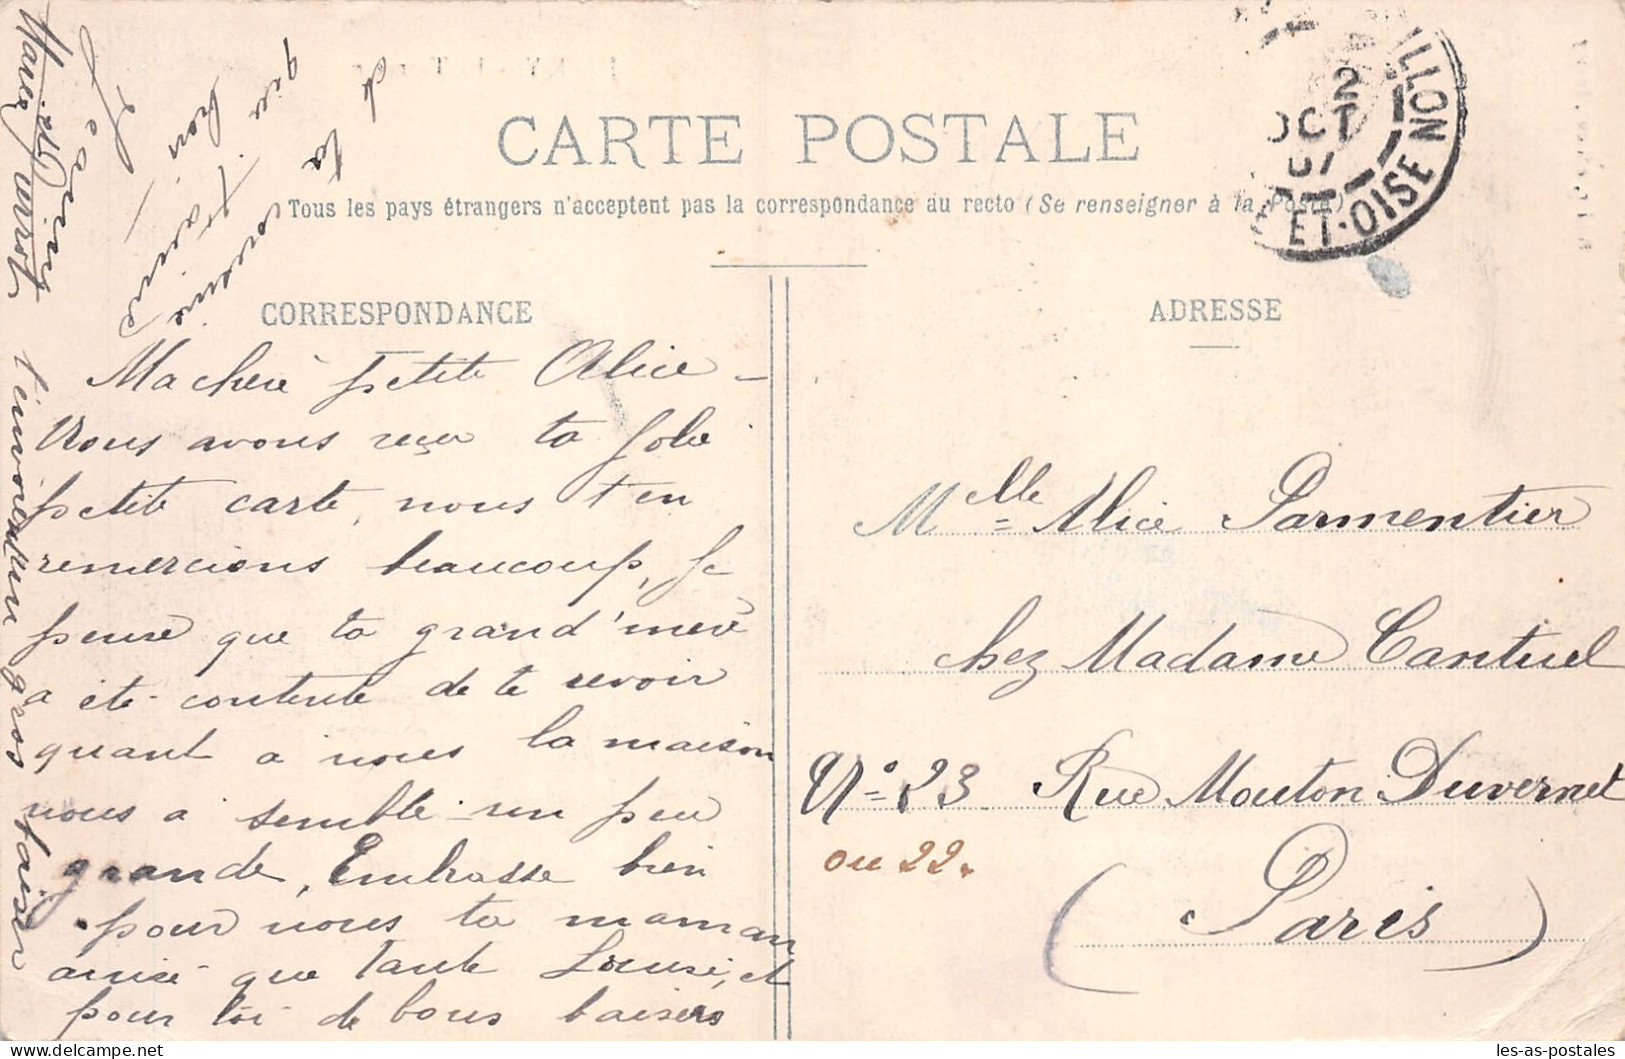 CARTE POSTALE
Tous les pays étrangers n'acceptent pas la correspondance au recto (Se renseigner à la Poste)
CORRESPONDANCE
Ma chère petite Alice
Nous avons reçu ta jolie
petite carte, nous t'en
remercions beaucoup, Je
pense que ta grand'mère
a été contente de te revoir
quant a nous la maison
nous a semblé un peu
grande, Embrasse bien
pour nous ta maman
ainsi que Tante Louise, et
pour toi de bons baisers
de ta cousine
qui t'aime
bien
Jeanne
t'envoient un gros baiser
ADRESSE
Melle Alice Parmentier
chez Madame Cantuel
N° 23 Rue Mouton Duvernet
ou 22.
(Paris)
2
OCT
07
ET-OISE
les-as-postales